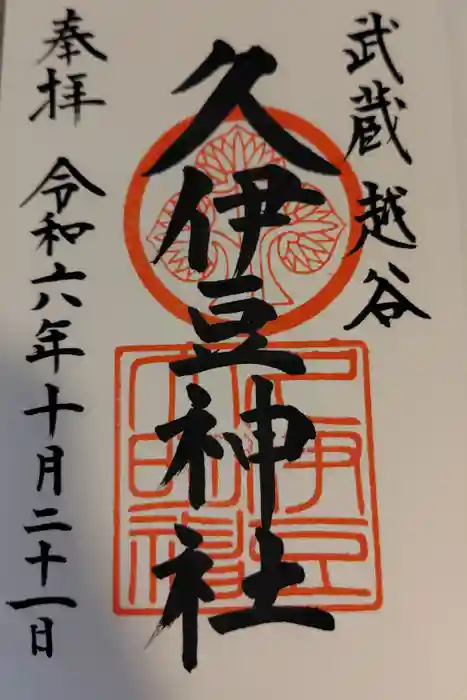 武蔵越谷
久伊豆神社
奉拝 令和六年十月二十一日